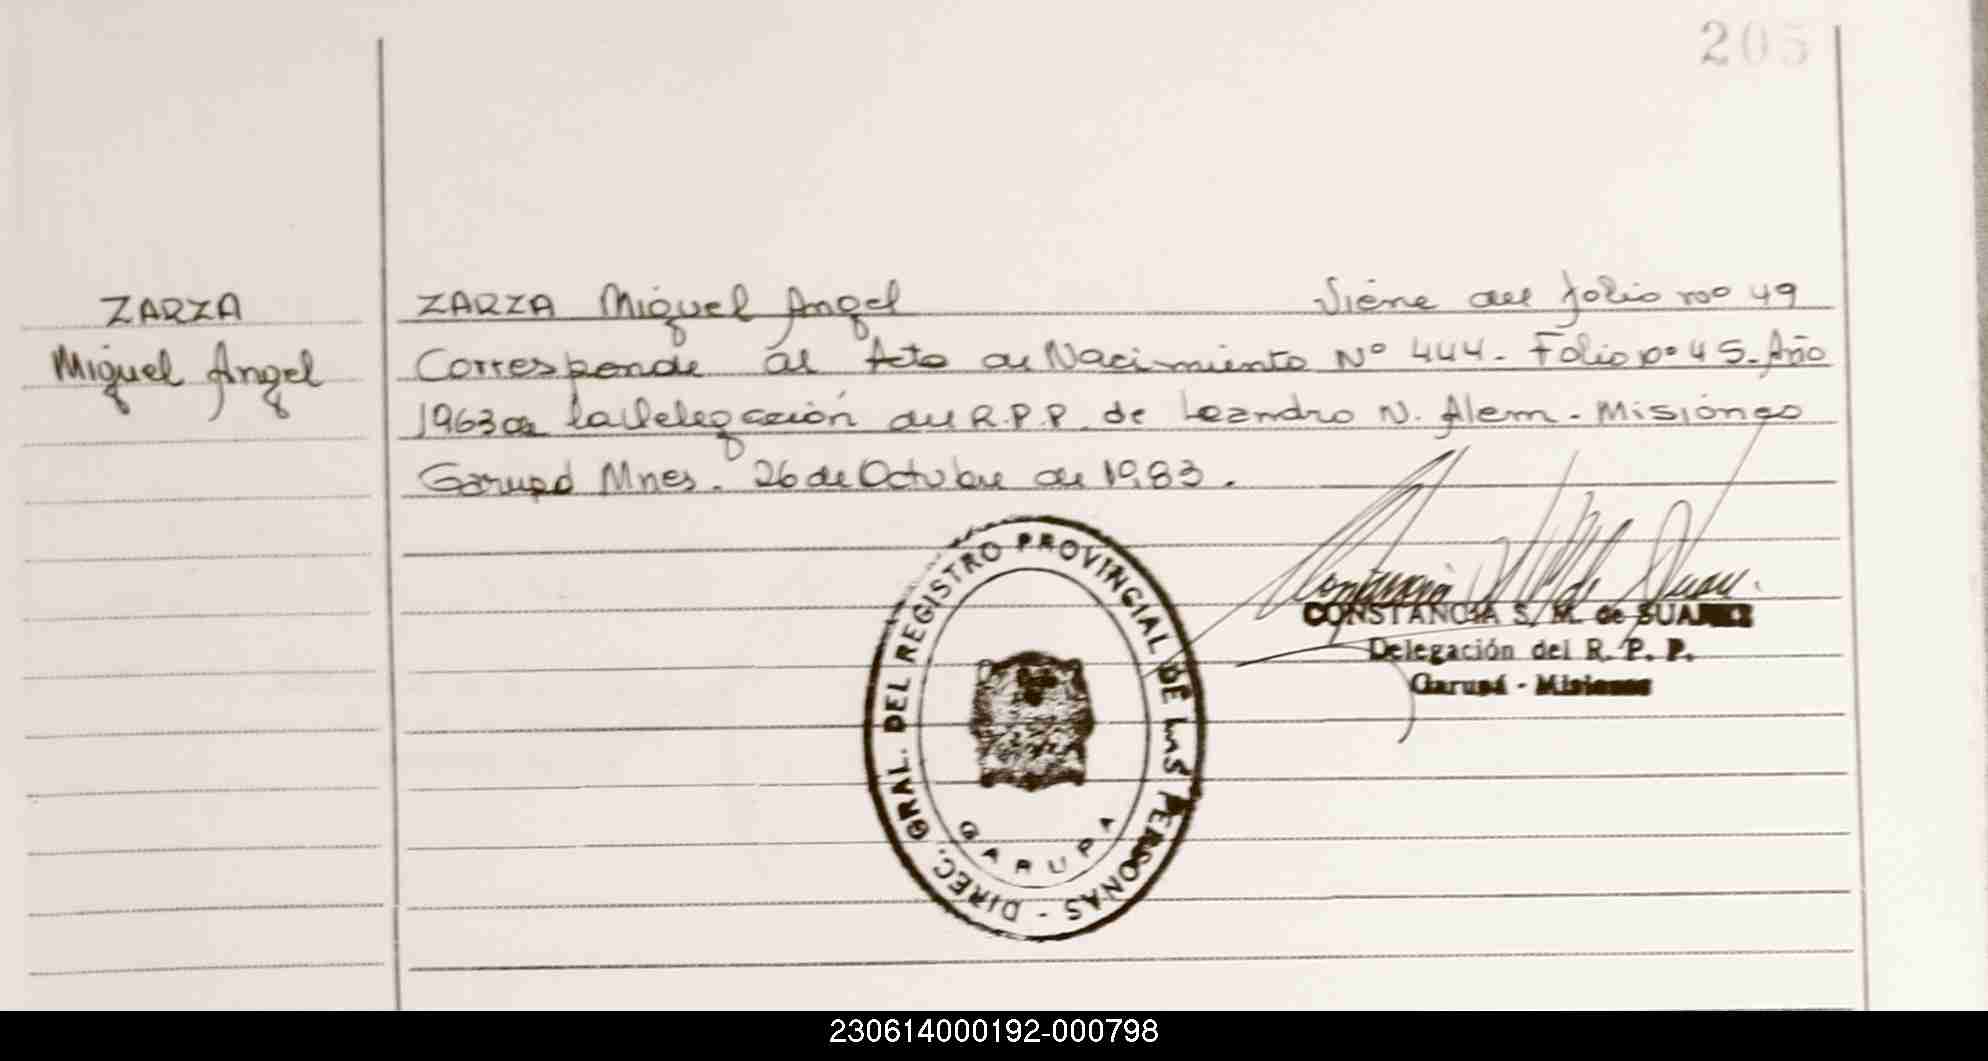 205
ZARZA
Miguel Angel
ZARZA Miguel Angel Viene del folio nº 49
Corresponde al Acta de Nacimiento Nº 444. Folio nº 45. Año
1963 de la Delegación del R.P.P. de Leandro N. Alem - Misiones
Garupá Mnes. 26 de Octubre de 1983.
CONSTANCIA S. M. de SUAREZ
Delegación del R. P. P.
Garupá - Misiones
DIREC. GRAL. DEL REGISTRO PROVINCIAL DE LAS PERSONAS -
GARUPA
230614000192-000798